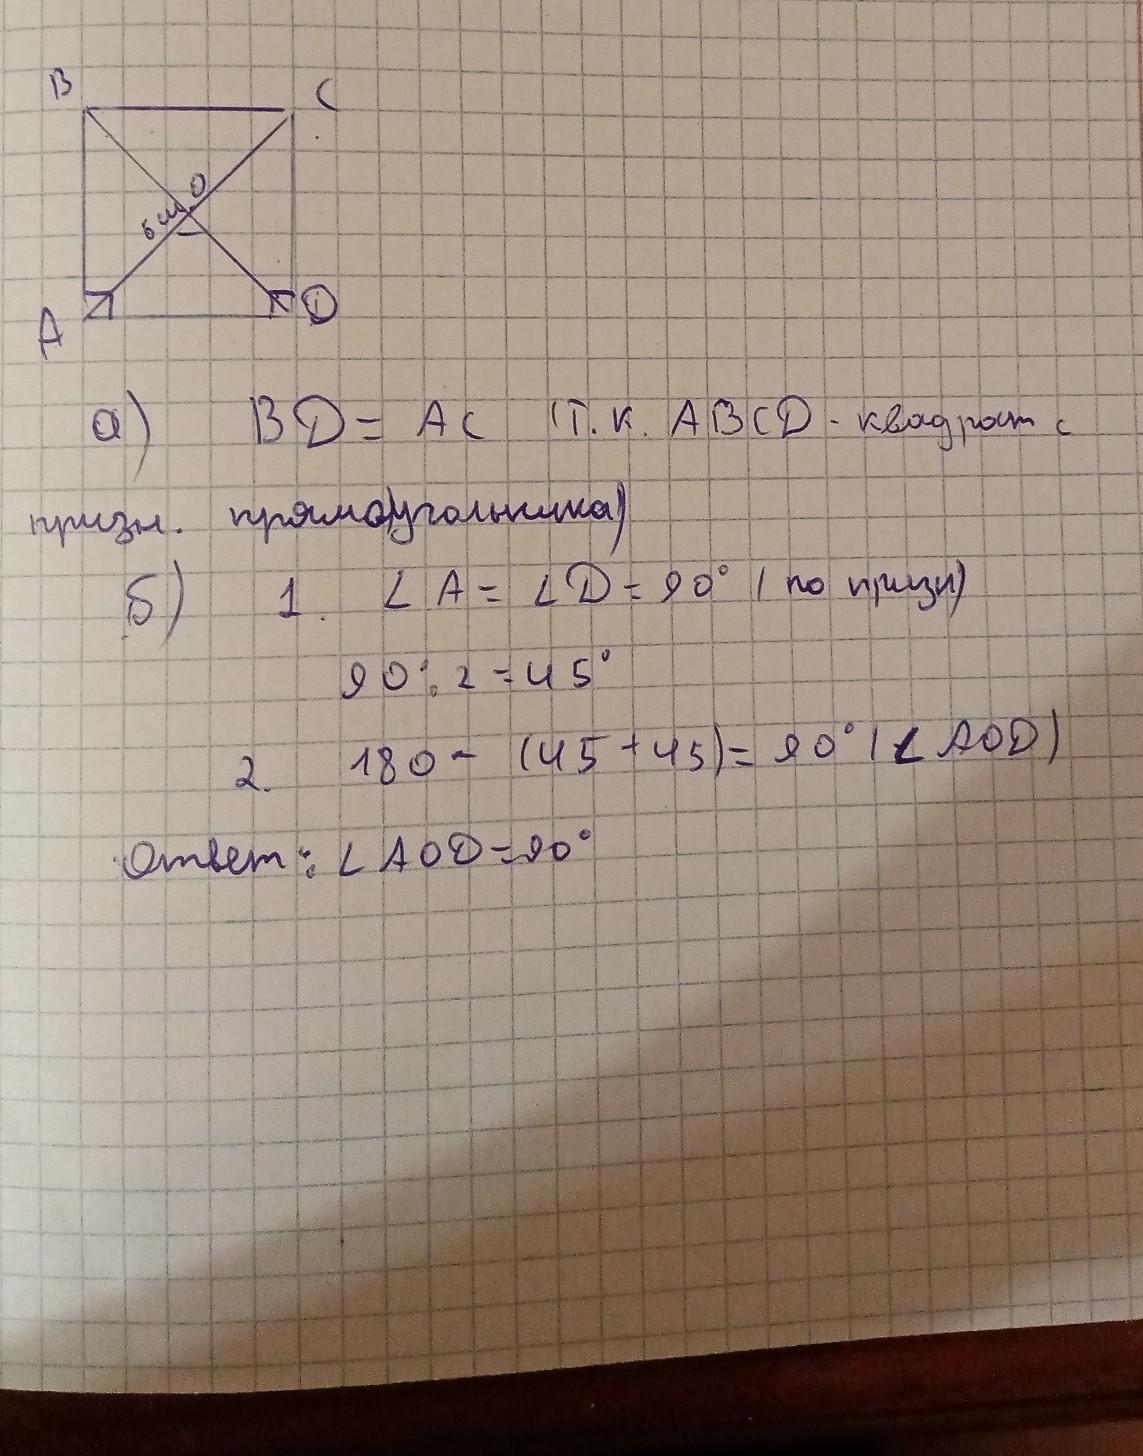 B
C
O
6 см
A
D
а) BD = AC (т.к. ABCD - квадрат с
призн. прямоугольника)
б) 1. ∠A = ∠D = 90° (по призн)
90 : 2 = 45°
2. 180 - (45 + 45) = 90° (∠AOD)
Ответ: ∠AOD = 90°